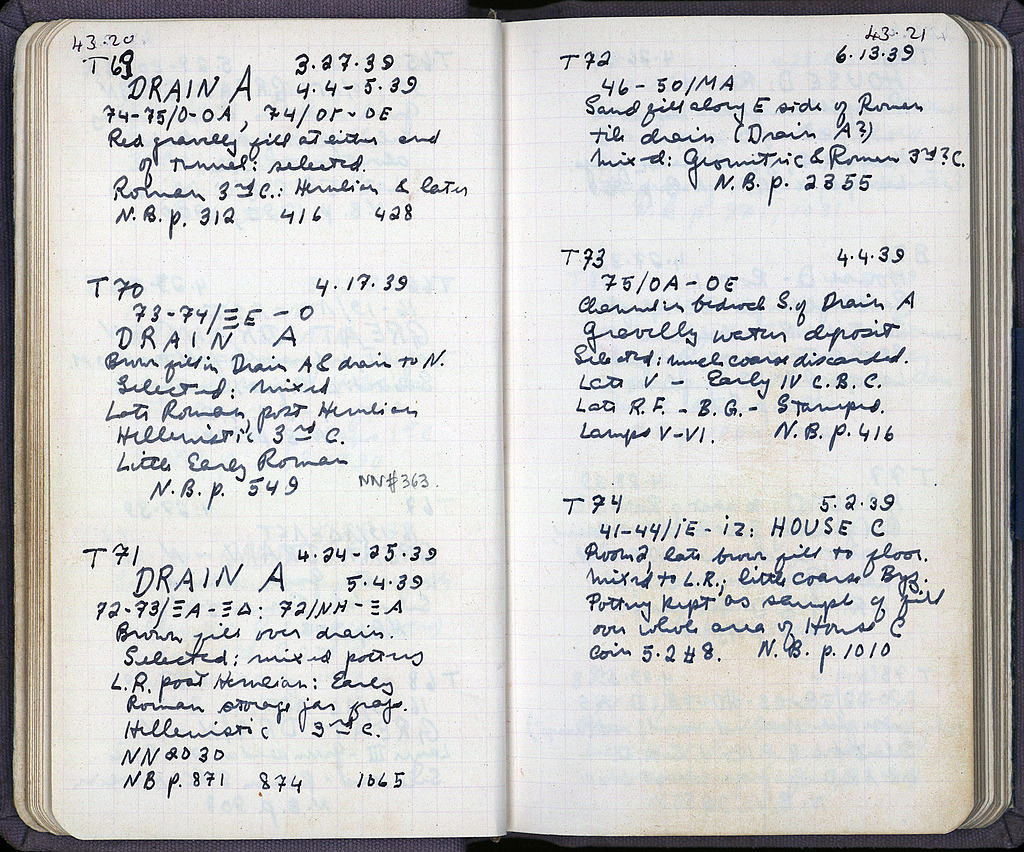 43.20
T 69 3.27.39
DRAIN A 4.4-5.39
74-75/O-OA, 74/OΓ-OE
Red gravelly fill at either end
of tunnel: selected.
Roman 3rd C.: Herulian & later
N.B. p. 312 416 428
T 70 4.17.39
73-74/ΞE-O
DRAIN A
Brown fill in Drain A & drain to N.
Selected: mixed
Late Roman, post Herulian
Hellenistic 3rd C.
Little Early Roman
N.B. p. 549 NN#363
T 71 4.24-25.39
DRAIN A 5.4.39
72-73/ΞA-ΞΔ: 72/NH-ΞA
Brown fill over drain.
Selected: mixed pottery
L.R. post Herulian: Early
Roman storage jar frags.
Hellenistic 3rd C.
NN 2030
NB p. 871 874 1065
43.21
T 72 6.13.39
46-50/MA
Sand fill along E side of Roman
tile drain (Drain A?)
Mixed: Geometric & Roman 3rd? C.
N.B. p. 2355
T 73 4.4.39
75/OA-OE
Channel in bedrock S. of Drain A
Gravelly water deposit
Selected: much coarse discarded.
Late V - Early IV C. B.C.
Late R.F. - B.G. - Stamped.
Lamps V-VI. N.B. p. 416
T 74 5.2.39
41-44/IE-IZ: HOUSE C
Room 2, late brown fill to floor.
Mixed to L.R.; little coarse Byz.
Pottery kept as sample of fill
over whole area of House C
Coin 5.2 #8. N.B. p. 1010